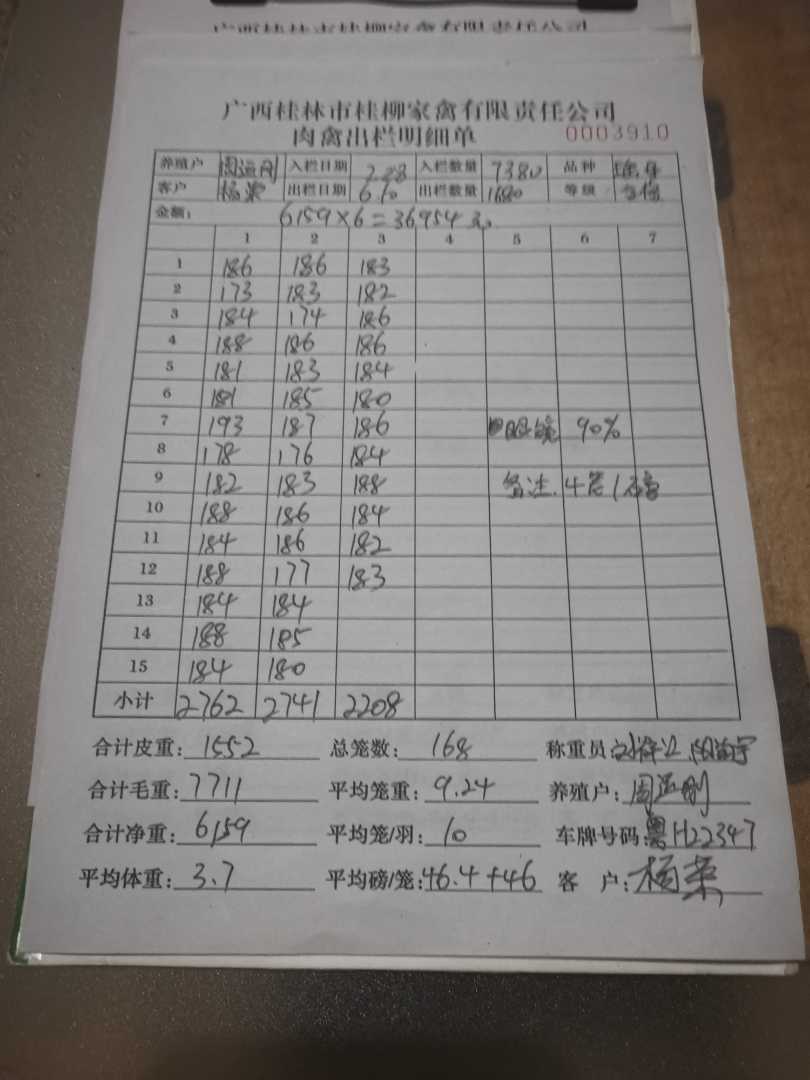 广西桂林市桂柳家禽有限责任公司
肉禽出栏明细单 0003910
养殖户 周运刚 入栏日期 2.28 入栏数量 7380 品种
客户 杨荣 出栏日期 6.10 出栏数量 1680 等级
金额: 6159×6=36954元
1 2 3 4 5 6 7
1 186 186 183
2 173 183 182
3 184 174 186
4 188 186 186
5 181 183 184
6 181 185 180
7 193 187 186 眼镜 90%
8 178 176 184
9 182 183 188 备注. 4笼1磅
10 188 186 184
11 184 186 182
12 188 177 183
13 184 184
14 188 185
15 184 180
小计 2762 2741 2208
合计皮重: 1552 总笼数: 168 称重员
合计毛重: 7711 平均笼重: 9.24 养殖户: 周运刚
合计净重: 6159 平均笼/羽: 10 车牌号码: 粤H22347
平均体重: 3.7 平均磅/笼: 46.4+46 客 户: 杨荣